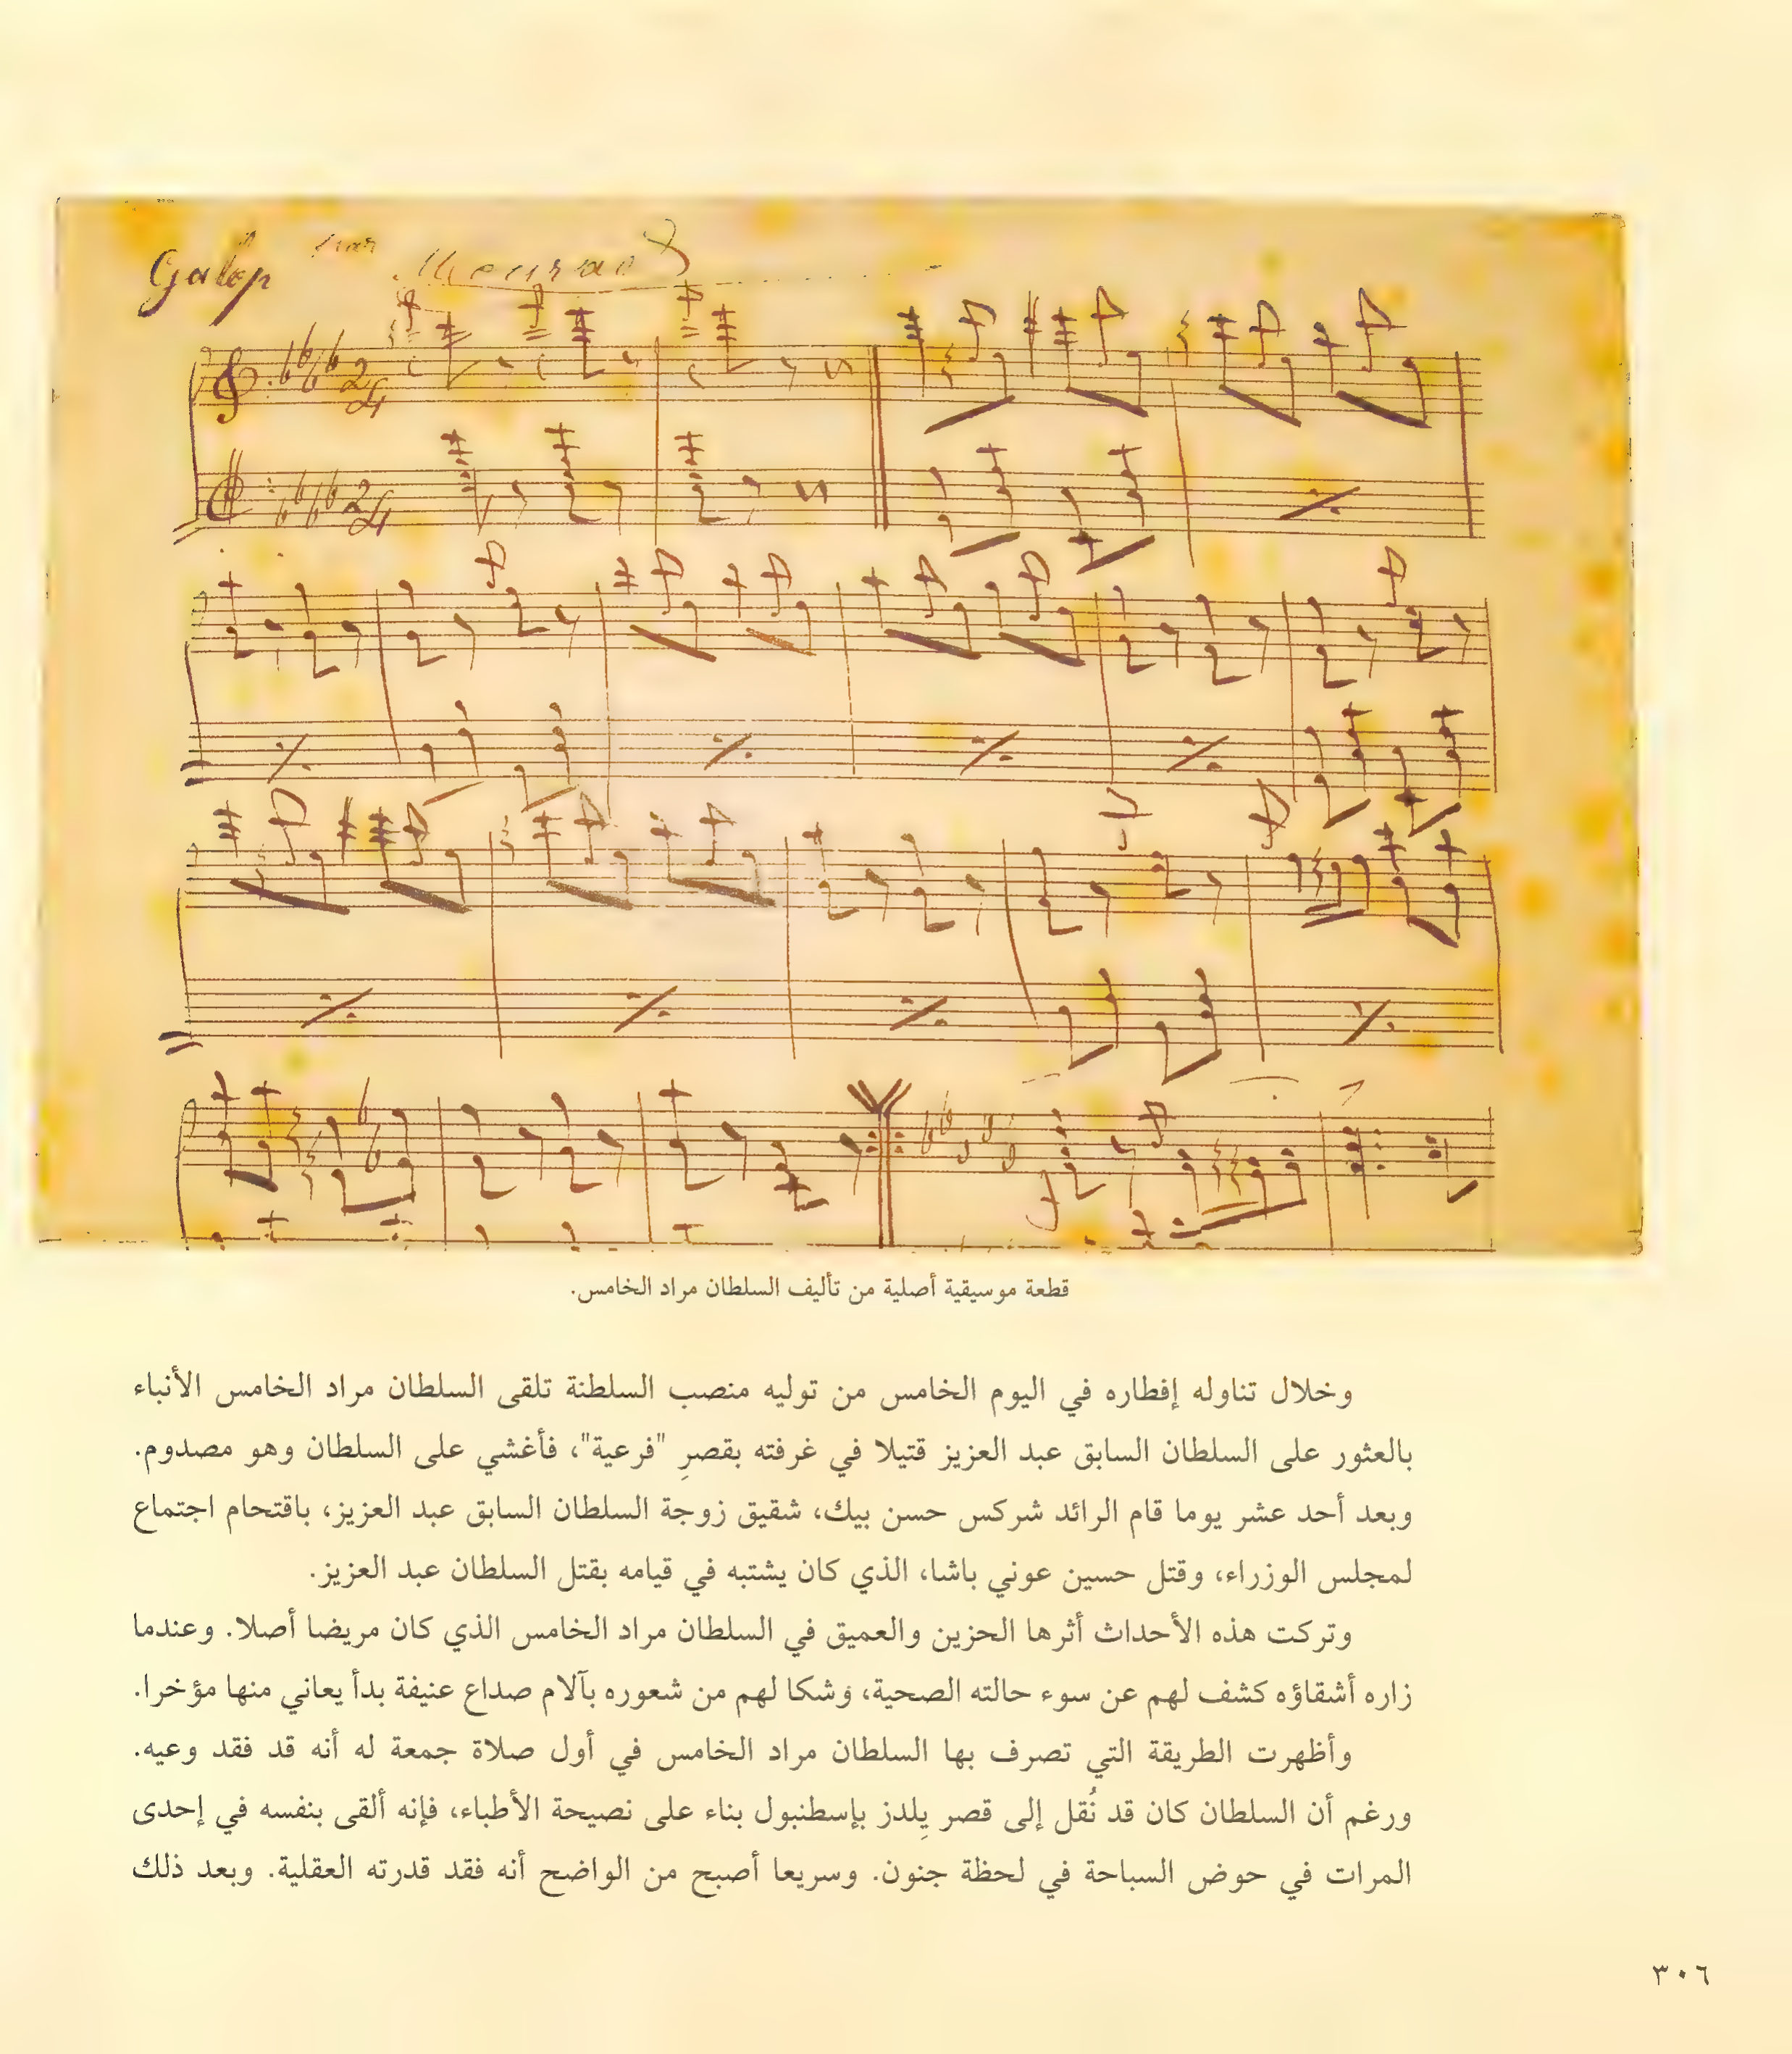 Galop
قطعة موسيقية أصلية من تأليف السلطان مراد الخامس.
وخلال تناوله إفطاره في اليوم الخامس من توليه منصب السلطنة تلقى السلطان مراد الخامس الأنباء
بالعثور على السلطان السابق عبد العزيز قتيلا في غرفته بقصرِ "فرعية"، فأغشي على السلطان وهو مصدوم.
وبعد أحد عشر يوما قام الرائد شركس حسن بيك، شقيق زوجة السلطان السابق عبد العزيز، باقتحام اجتماع
لمجلس الوزراء، وقتل حسين عوني باشا، الذي كان يشتبه في قيامه بقتل السلطان عبد العزيز.
وتركت هذه الأحداث أثرها الحزين والعميق في السلطان مراد الخامس الذي كان مريضا أصلا. وعندما
زاره أشقاؤه كشف لهم عن سوء حالته الصحية، وشكا لهم من شعوره بآلام صداع عنيفة بدأ يعاني منها مؤخرا.
وأظهرت الطريقة التي تصرف بها السلطان مراد الخامس في أول صلاة جمعة له أنه قد فقد وعيه.
ورغم أن السلطان كان قد نُقل إلى قصر يِلدز بإسطنبول بناء على نصيحة الأطباء، فإنه ألقى بنفسه في إحدى
المرات في حوض السباحة في لحظة جنون. وسريعا أصبح من الواضح أنه فقد قدرته العقلية. وبعد ذلك
٣٠٦